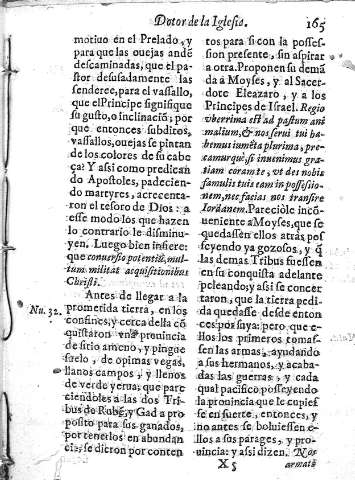 Dotor de la Iglesia. 165
motivo en el Prelado, y
para que las ouejas andẽ
descaminadas, que el pa-
stor desusadamente las
senderee, para el vassallo,
que el Principe signifique
su gusto, o inclinaciõ; por
que entonces subditos,
vassallos, ouejas se pintan
de los colores de su cabe
ça? Y assi como predican
do Apostoles, padecien-
do martyres, acrecenta-
ron el tesoro de Dios: a
esse modo los que hazen
lo contrario le disminu-
yen. Luego bien infiere:
que conuersio potentiũ, mul-
tum militat acquisitionibus
Christi.
Antes de llegar a la
Nu. 32.
prometida tierra, en los
confines, y cerca della cõ
quistaron vna prouincia
de sitio ameno, y pingue
suelo, de opimas vegas,
llanos campos, y llenos
de verde yerua; que pare
ciendoles a las dos Tri
bus de Rubẽ, y Gad a pro
posito para sus ganados,
por tenerlos en abundan
cia; se dieron por conten
tos para si con la posses-
sion presente, sin aspirar
a otra. Proponen su demã
da a Moyses, y al Sacer-
dote Eleazaro, y a los
Principes de Israel. Regio
vberrima est ad pastum ani
malium, & nos serui tui ha-
bemus iumẽta plurima, pre-
camurquè, si inuenimus gra-
tiam coram te, vt des nobis
famulis tuis eam in possessio-
nem, nec facias nos transire
Iordanem. Pareciòle incõ-
ueniente a Moyses, que se
quedassen ellos atras pos
seyendo ya gozosos, y q̃
las demas Tribus fuessen
en su conquista adelante
peleando; y assi se concer
taron, que la tierra pedi-
da quedasse desde enton
ces por suya: pero que e-
llos los primeros tomas-
sen las armas, ayudando
a sus hermanos, y acaba-
das las guerras, y cada
qual pacifico posseyendo
la prouincia que le cupies
se en suerte, entonces, y
no antes se boluiessen e-
llos a sus parages, y pro-
uincia: y assi dizen. Nos
X 5 armati